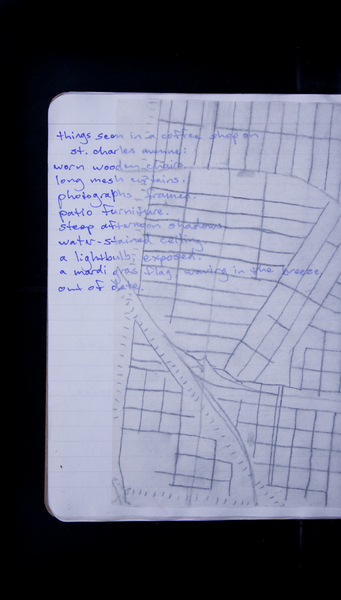 things seen in a coffee shop on
st. charles avenue:
worn wooden chairs.
long mesh curtains.
photographs, framed.
patio furniture.
steep afternoon shadows.
water-stained ceiling
a lightbulb, exposed.
a mardi gras flag waving in the breeze,
out of date.